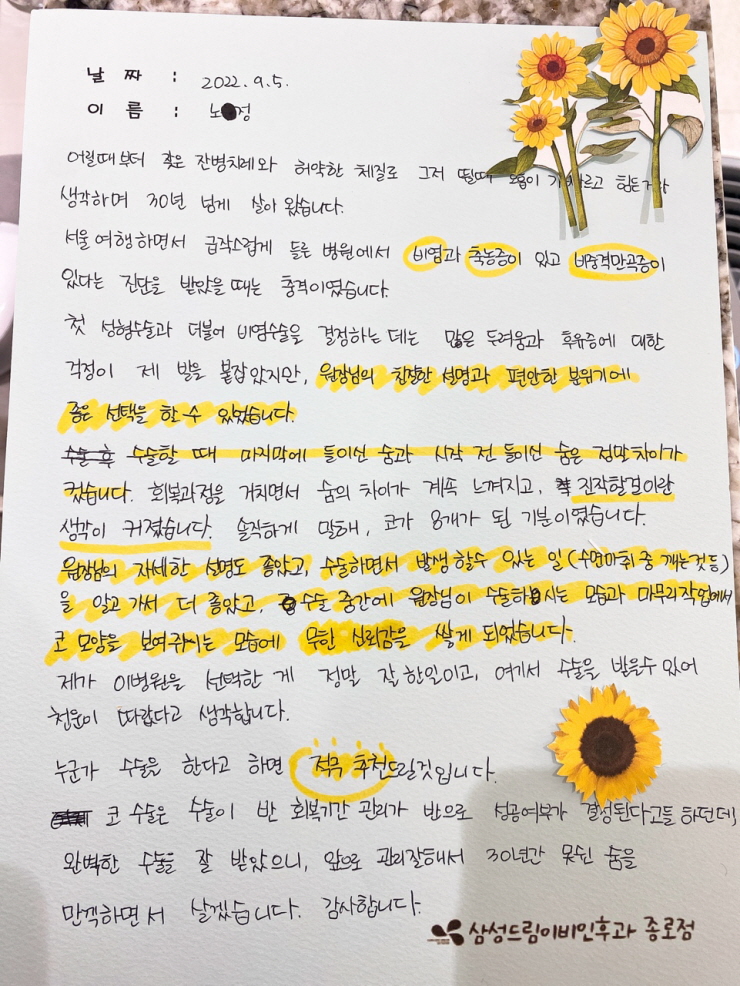 날 짜 : 2022. 9. 5.
이 름 : 노 정
어릴때부터 잦은 잔병치레와 허약한 체질로 그저 뛸때 호흡이 가 르고 힘든거라
생각하며 30년 넘게 살아 왔습니다.
서울 여행하면서 급작스럽게 들른 병원에서 비염과 축농증이 있고 비중격만곡증이
있다는 진단을 받았을때는 충격이였습니다.
첫 성형수술과 더불어 비염수술을 결정하는 데는 많은 두려움과 후유증에 대한
걱정이 제 발을 붙잡았지만, 원장님의 친절한 설명과 편안한 분위기에
좋은 선택을 할 수 있었습니다.
수술 후 수술할 때 마지막에 들이신 숨과 시작 전 들이신 숨은 정말 차이가
컸습니다. 회복과정을 거치면서 숨의 차이가 계속 느껴지고, 진작할걸이란
생각이 커졌습니다. 솔직하게 말해, 코가 8개가 된 기분이였습니다.
원장님의 자세한 설명도 좋았고, 수술하면서 발생할수 있는 일(수면마취 중 깨는것등)
을 알고 가서 더 좋았고, 수술 중간에 원장님이 수술하시는 모습과 마무리작업에서
코 모양을 보여주시는 모습에 무한 신뢰감을 쌓게 되었습니다.
제가 이병원을 선택한 게 정말 잘 한일이고, 여기서 수술을 받을수 있어
천운이 따랐다고 생각합니다.
누군가 수술을 한다고 하면 적극 추천드릴것입니다.
코 수술은 수술이 반 회복기간 관리가 반으로 성공여부가 결성된다고들 하던데,
완벽한 수술을 잘 받았으니, 앞으로 관리잘해서 30년간 못쉰 숨을
만끽하면서 살겠습니다. 감사합니다.
삼성드림이비인후과 종로점